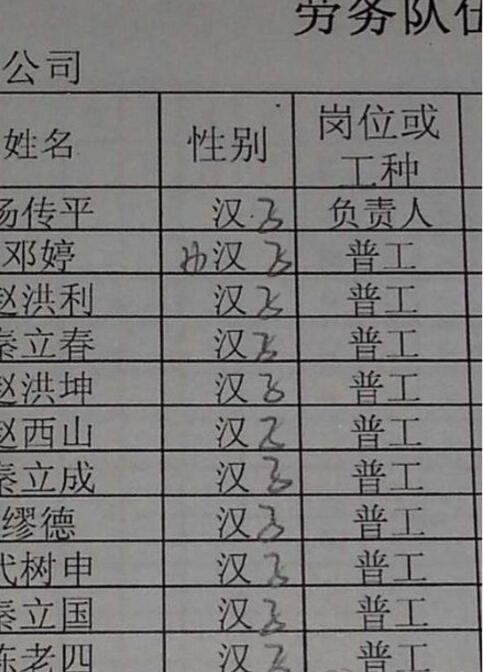 劳务队伍
公司
姓名 性别 岗位或工种
杨传平 汉 负责人
邓婷 汉 普工
赵洪利 汉 普工
秦立春 汉 普工
赵洪坤 汉 普工
赵西山 汉 普工
秦立成 汉 普工
缪德 汉 普工
代树申 汉 普工
秦立国 汉 普工
陈老四 汉 普工